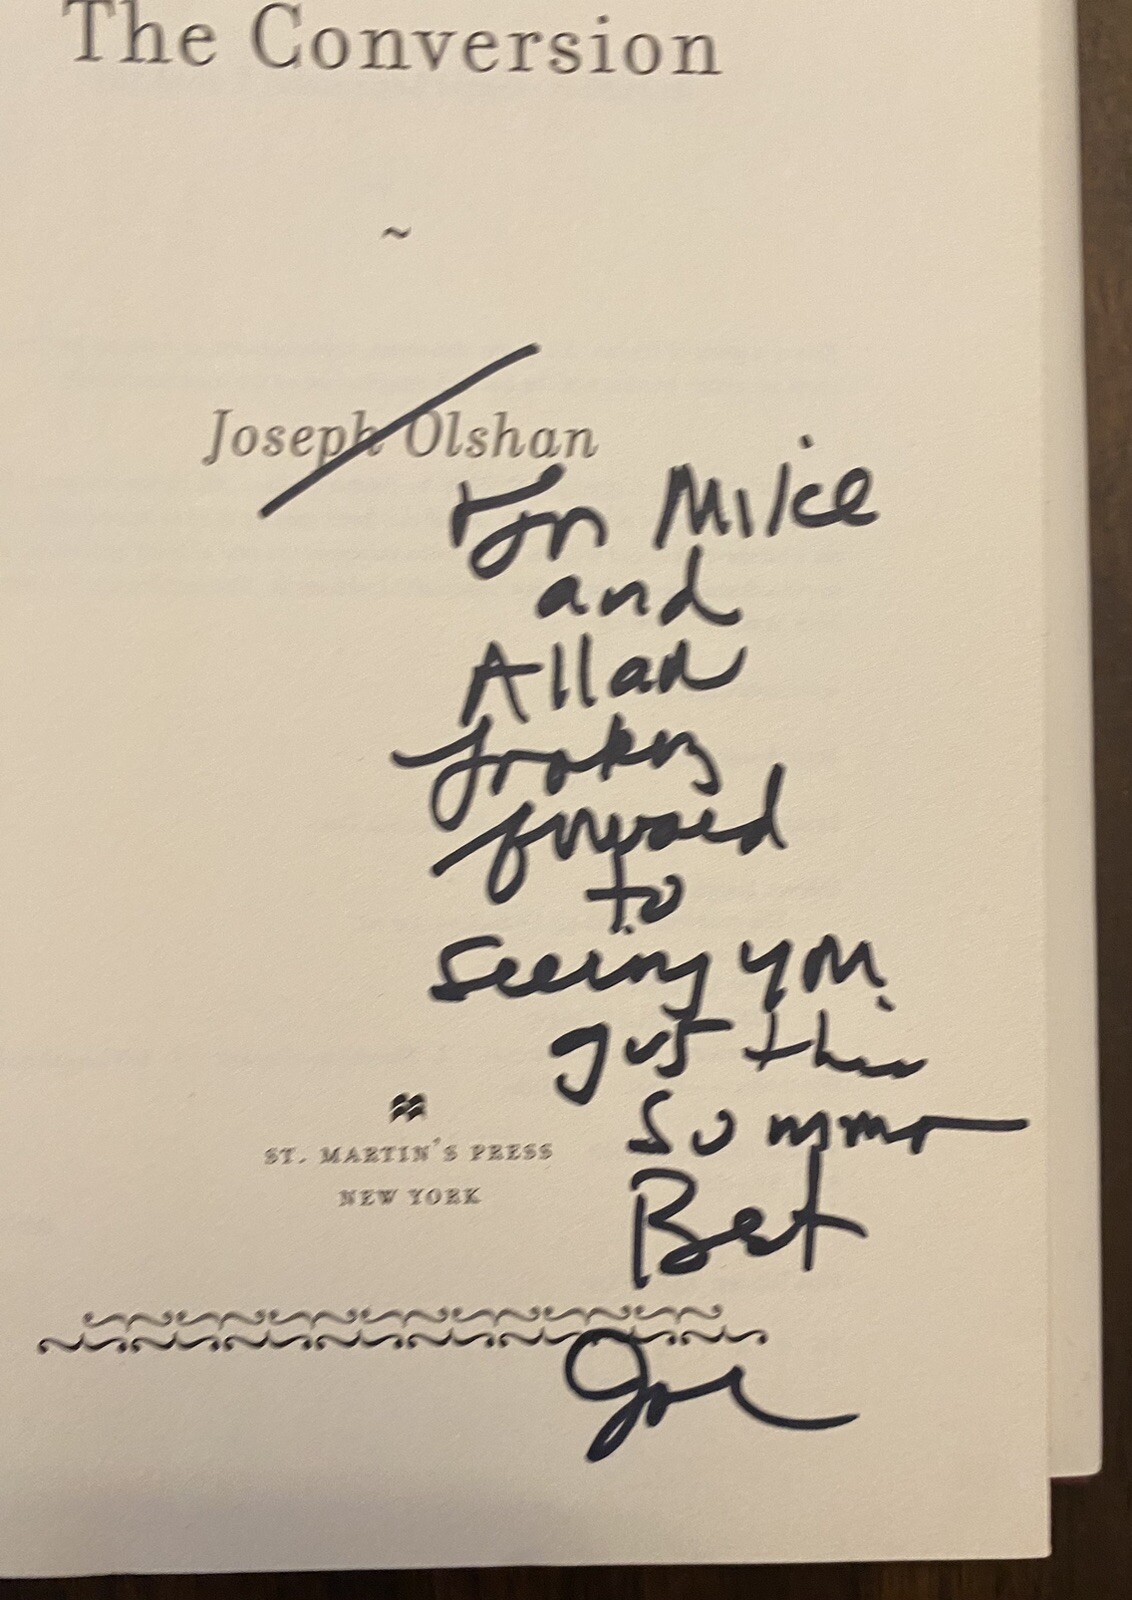 The Conversion
~
Joseph Olshan
For Mike
and
Allan
looking
forward
to
seeing you
guys this
summer
ST. MARTIN'S PRESS
NEW YORK
Best
Joe